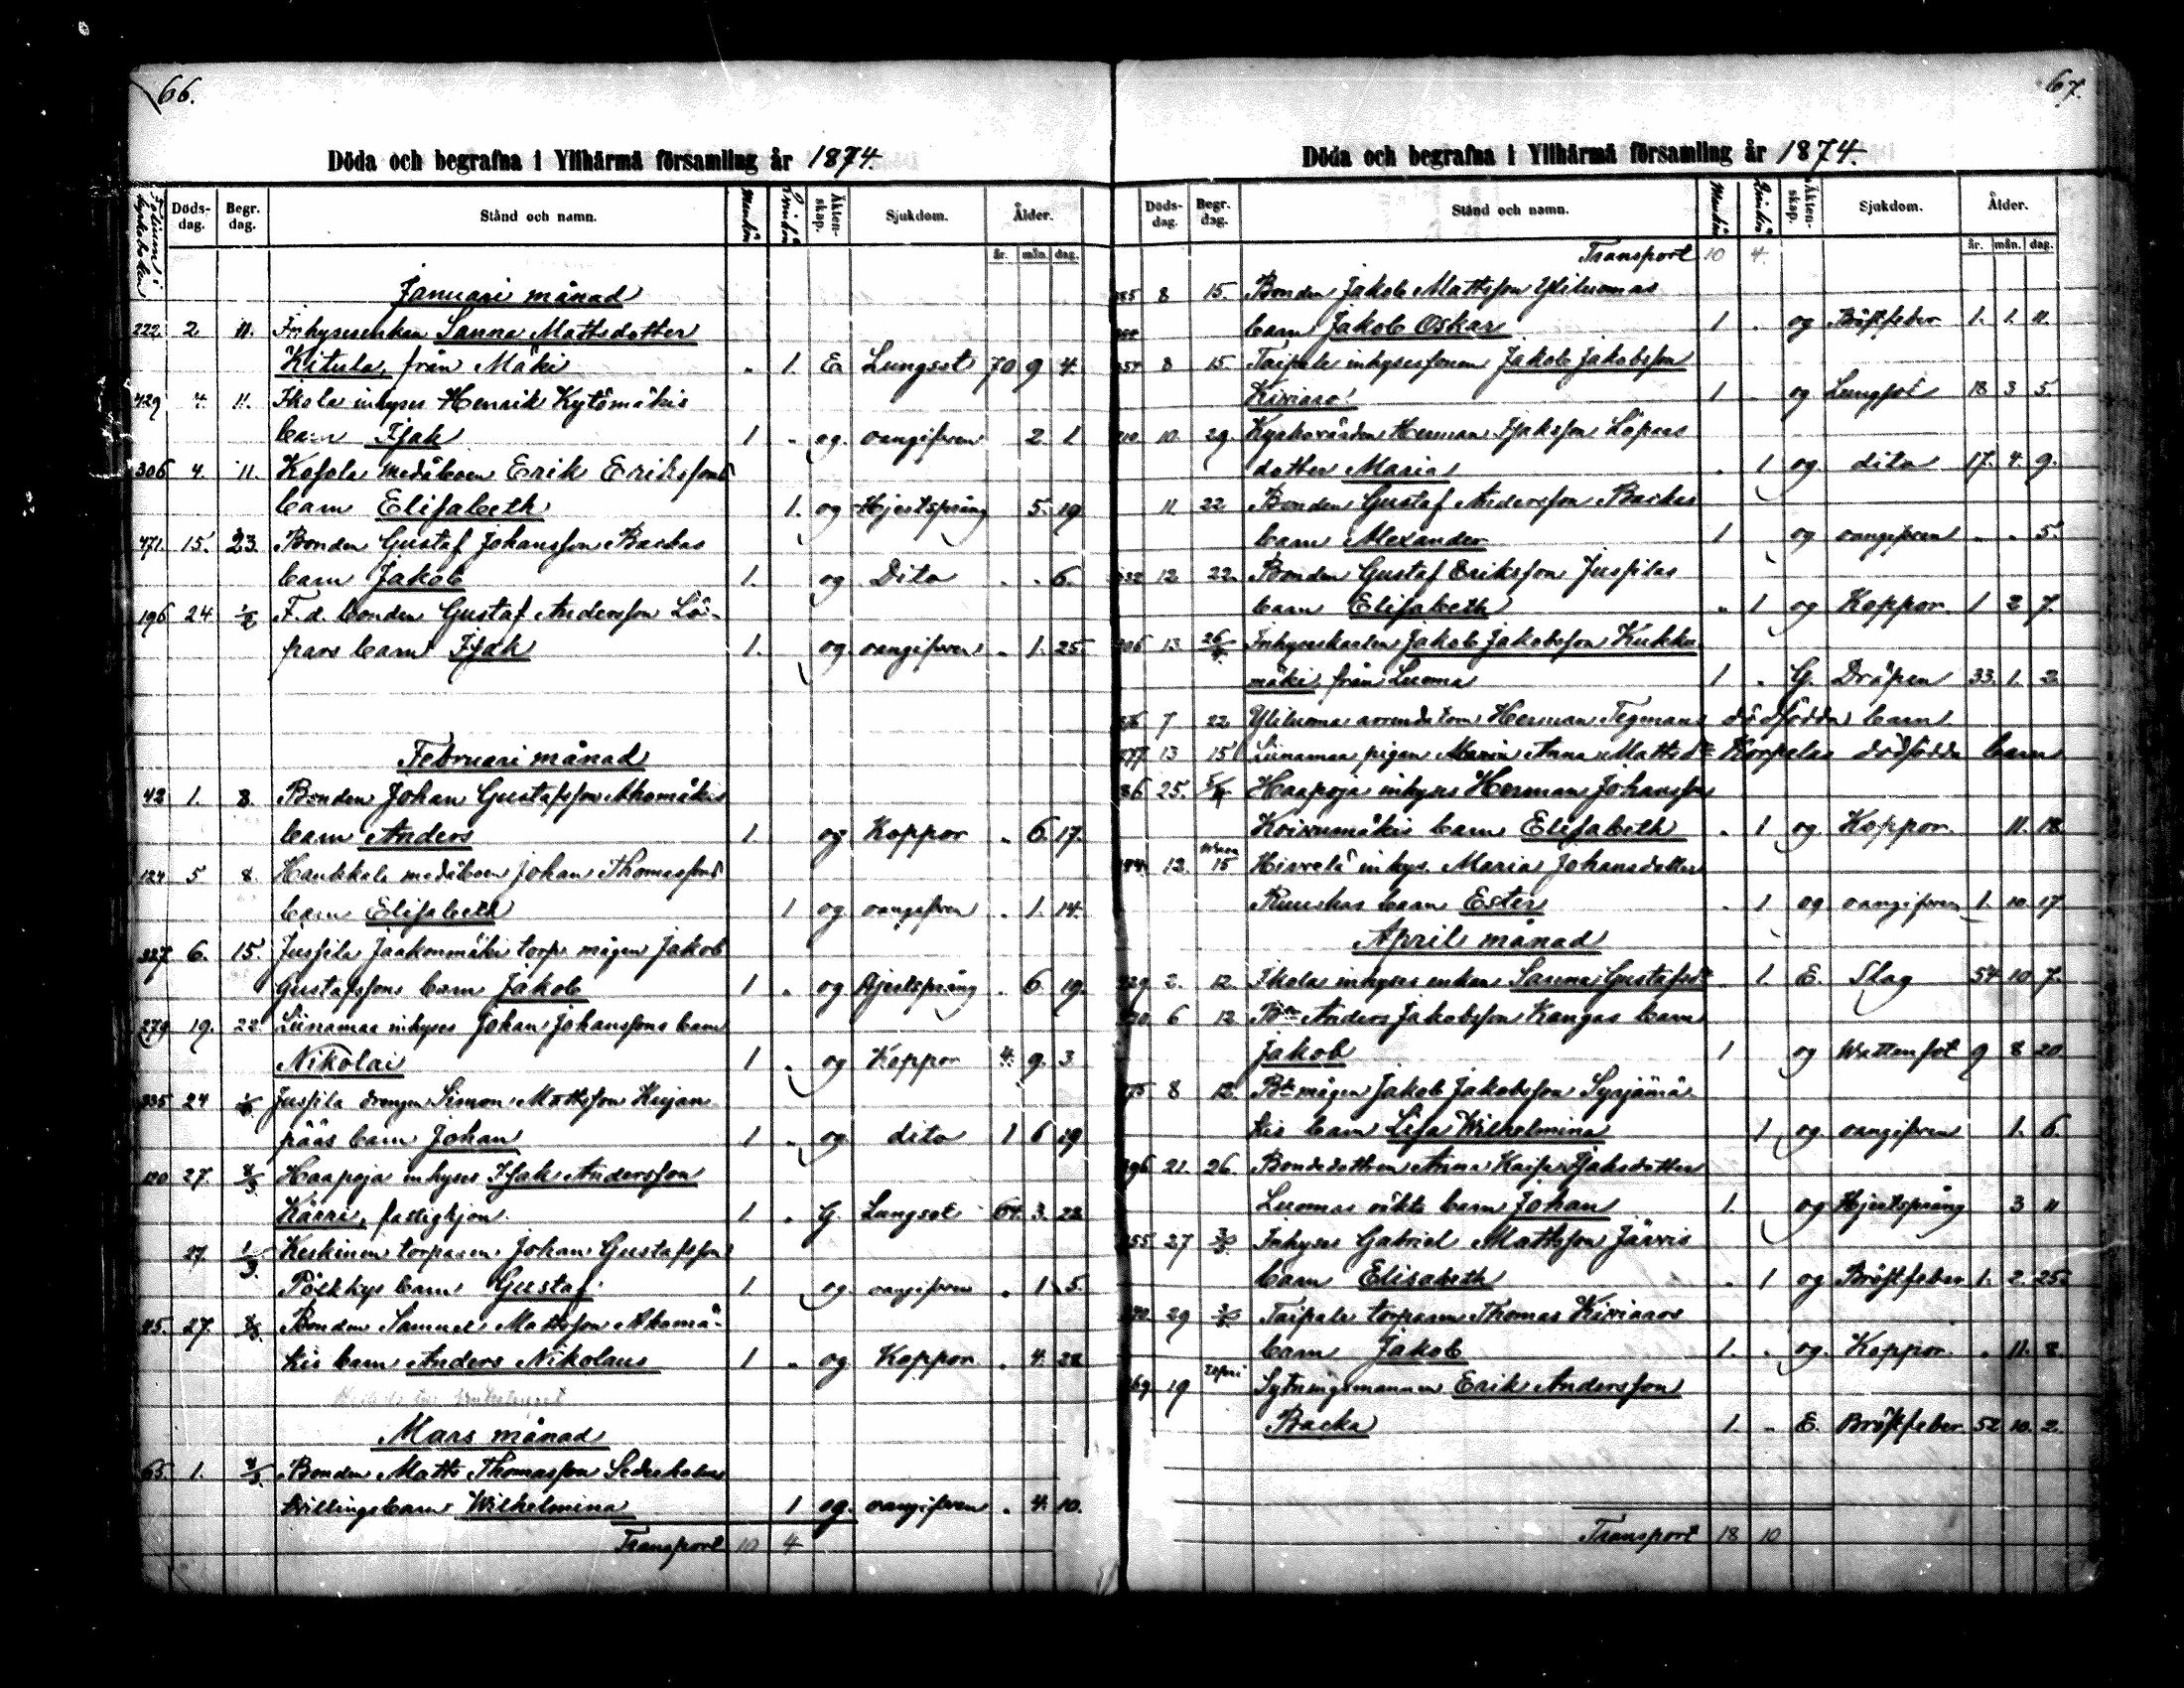 66.
Döda och begrafna i Ylihärmä församling år 1874.
Folium i kyrkoboken Döds-dag. Begr. dag. Stånd och namn. Mankön Qvinkön Äkten-skap. Sjukdom. Ålder.
år. mån. dag.
Januari månad
222 2. 11. Inhysesenkan Sanna Mattsdotter
Kitula, från Mäki . 1. E Lungsot 70 9 4.
429 4. 11. Ikola inhyses Henrik Kytömäkis
barn Isak 1 . og. oangifven 2. 1
306 4. 11. Kosola medåboen Erik Erikssons
barn Elisabeth 1. og Hjertsprång 5. 19
471. 15. 23. Bonden Gustaf Johansson Backas
barn Jakob 1. og Dito . . 6.
196 24. 1/2 F. d. bonden Gustaf Andersson Löi-
pars barn Isak 1. og oangifven . 1. 25.
Februari månad
42 1. 8. Bonden Johan Gustafsson Ahomäkis
barn Anders 1. og Koppor . 6. 17.
124 5 8. Haukkala medåboen Johan Thomassons
barn Elisabeth 1 og oangifven . 1. 14.
327 6. 15. Jussila Jaakonmäki torp. mågen Jakob
Gustafssons barn Jakob 1 . og Hjertsprång . 6. 19.
279 19. 22. Liinamaa inhyses Johan Johanssons barn
Nikolai 1 . og Koppor 4. 9. 3
335 24 Jussila drengen Simon Mattsson Kujan-
pääs barn Johan 1 . og dito 1 6 19
120 27. 8/3. Haapoja inhyses Isak Andersson
Kaari, fattighjon. 1. . G. Lungsot 64. 3. 22
27. 1/3. Keskinen torparen Johan Gustafsson
Pölkkys barn Gustaf 1 og. oangifven . 1 5.
45. 27. 8/3. Bonden Samuel Mattsson Ahomä-
kis barn Anders Nikolaus 1 . og Koppor . 4. 22
Mars månad
65. 1. 8/3. Bonden Matts Thomasson Sederholms
tvillingsbarn Wilhelmina 1 og. oangifven . 4. 10.
Transport 10 4
67.
Döda och begrafna i Ylihärmä församling år 1874.
Döds-dag. Begr. dag. Stånd och namn. Mankön Qvinkön Äkten-skap. Sjukdom. Ålder.
år. mån. dag.
Transport 10 4.
8 15. Bonden Jakob Mattsson Yliluomas
barn Jakob Oskar 1 . og Bröstfeber 1. 1. 11.
8 15. Taipale inhysessonen Jakob Jakobsson
Kiviaro 1 . og Lungsot 18 3 5.
10. 29. Kyrkovärden Herman Isaksson Löpars
dotter Maria . 1 og dito 17. 4. 9.
11. 22 Bonden Gustaf Andersson Backas
barn Alexander 1 og oangifven . . 5.
12 22. Bonden Gustaf Eriksson Jussilas
barn Elisabeth . 1 og Koppor. 1 2 7.
13. Inhyseskarlen Jakob Jakobsson Kukko-
mäki, från Luoma 1 . G. Dråpen 33. 1. 2.
7 22. Yliluoma arrendatorn Herman Tegmans dödfödda barn
13 15 Liinamaa pigan Anna Mattsdr Korpelas dödfödda barn
86 25. Haapoja inhyses Herman Johansson
Koivumäkis barn Elisabeth . 1 og. Koppor. 11. 18.
12. 15 Hirvelä inhys. Maria Johansdotter
Ruuskas barn Ester . 1 og oangifven 1. 10. 17
April månad
2. 12. Ikola inhyses enkan Sanna Gustafsdr 1. E. Slag 54 10 7.
6 12 Bn Anders Jakobsson Kangas barn
Jakob 1 og Wattensot 9 8 20
8 12. Bde mågen Jakob Jakobsson Syrjämä-
kis barn Lisa Wilhelmina 1 og oangifven 1. 6.
21. 26. Bondedottren Anna Kaisa Isaksdotter
Luomas oäkta barn Johan 1. og Hjertsprång 3 11
27 3/5. Inhyses Gabriel Mattsson Järvis
barn Elisabeth . 1 og Bröstfeber 1. 2. 25.
29 3/5. Taipale torparen Thomas Kiviaros
barn Jakob 1. . og. Koppor. . 11. 8.
19 Sytningsmannen Erik Andersson
Backa 1. . E. Bröstfeber 52 10. 2.
Transport 18 10